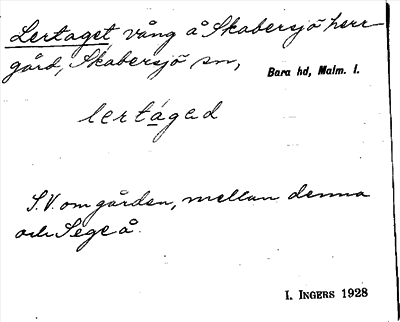 Lertaget vång å Skabersjö herr-
gård, Skabersjö sn,
Bara hd, Malm. l.
lertágəd
S.V. om gården, mellan denna
och Sege å.
I. INGERS 1928